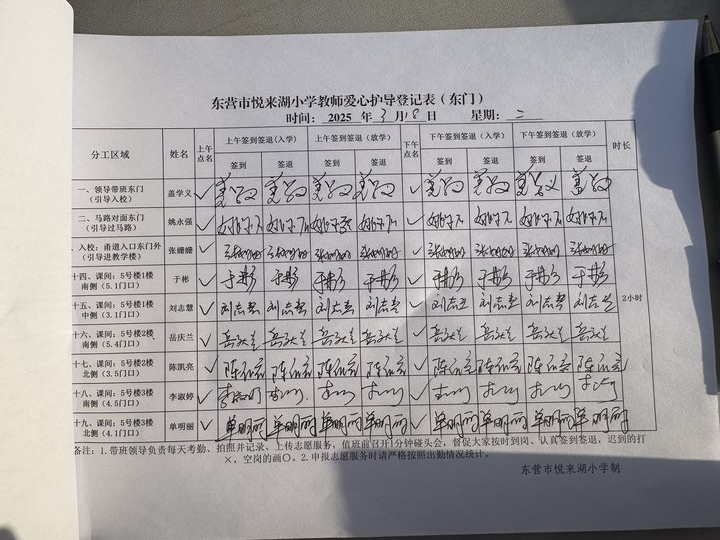 东营市悦来湖小学教师爱心护导登记表（东门）
时间： 2025 年 3 月 18 日 星期： 二
分工区域 姓名 上午点名 上午签到签退(入学) 上午签到签退（放学） 下午点名 下午签到签退（入学） 下午签到签退（放学） 时长
签到 签退 签到 签退 签到 签退 签到 签退
一、领导带班东门 盖学义 ✓ 盖学义 盖学义 盖学义 盖学义 ✓ 盖学义 盖学义 盖学义 盖学义
（引导入校）
二、马路对面东门 姚永强 ✓ ✓
（引导过马路）
、入校：甬道入口东门外 张姗姗 ✓ 张姗姗 张姗姗 张姗姗 张姗姗 ✓ 张姗姗 张姗姗 张姗姗 张姗姗
（引导进教学楼）
十四、课间：5号楼1楼 于彬 ✓ 于彬 于彬 于彬 于彬 ✓ 于彬 于彬 于彬 于彬
南侧（5.1门口）
十五、课间：5号楼1楼 刘志慧 ✓ 刘志慧 刘志慧 刘志慧 刘志慧 ✓ 刘志慧 刘志慧 刘志慧 刘志慧 2小时
中侧（3.1门口）
十六、课间：5号楼2楼 岳庆兰 ✓ 岳庆兰 岳庆兰 岳庆兰 岳庆兰 ✓ 岳庆兰 岳庆兰 岳庆兰 岳庆兰
南侧（5.4门口）
十七、课间：5号楼2楼 陈凯亮 ✓ 陈凯亮 陈凯亮 陈凯亮 陈凯亮 ✓ 陈凯亮 陈凯亮 陈凯亮 陈凯亮
北侧（3.5门口）
十八、课间：5号楼3楼 李淑婷 ✓ ✓
南侧（4.5门口）
十九、课间：5号楼3楼 单明丽 ✓ 单明丽 单明丽 单明丽 单明丽 ✓ 单明丽 单明丽 单明丽 单明丽
北侧（4.1门口）
备注：1.带班领导负责每天考勤、拍照并记录、上传志愿服务，值班前召开1分钟碰头会，督促大家按时到岗、认真签到签退，迟到的打
×，空岗的画○。2.申报志愿服务时请严格按照出勤情况统计。
东营市悦来湖小学制